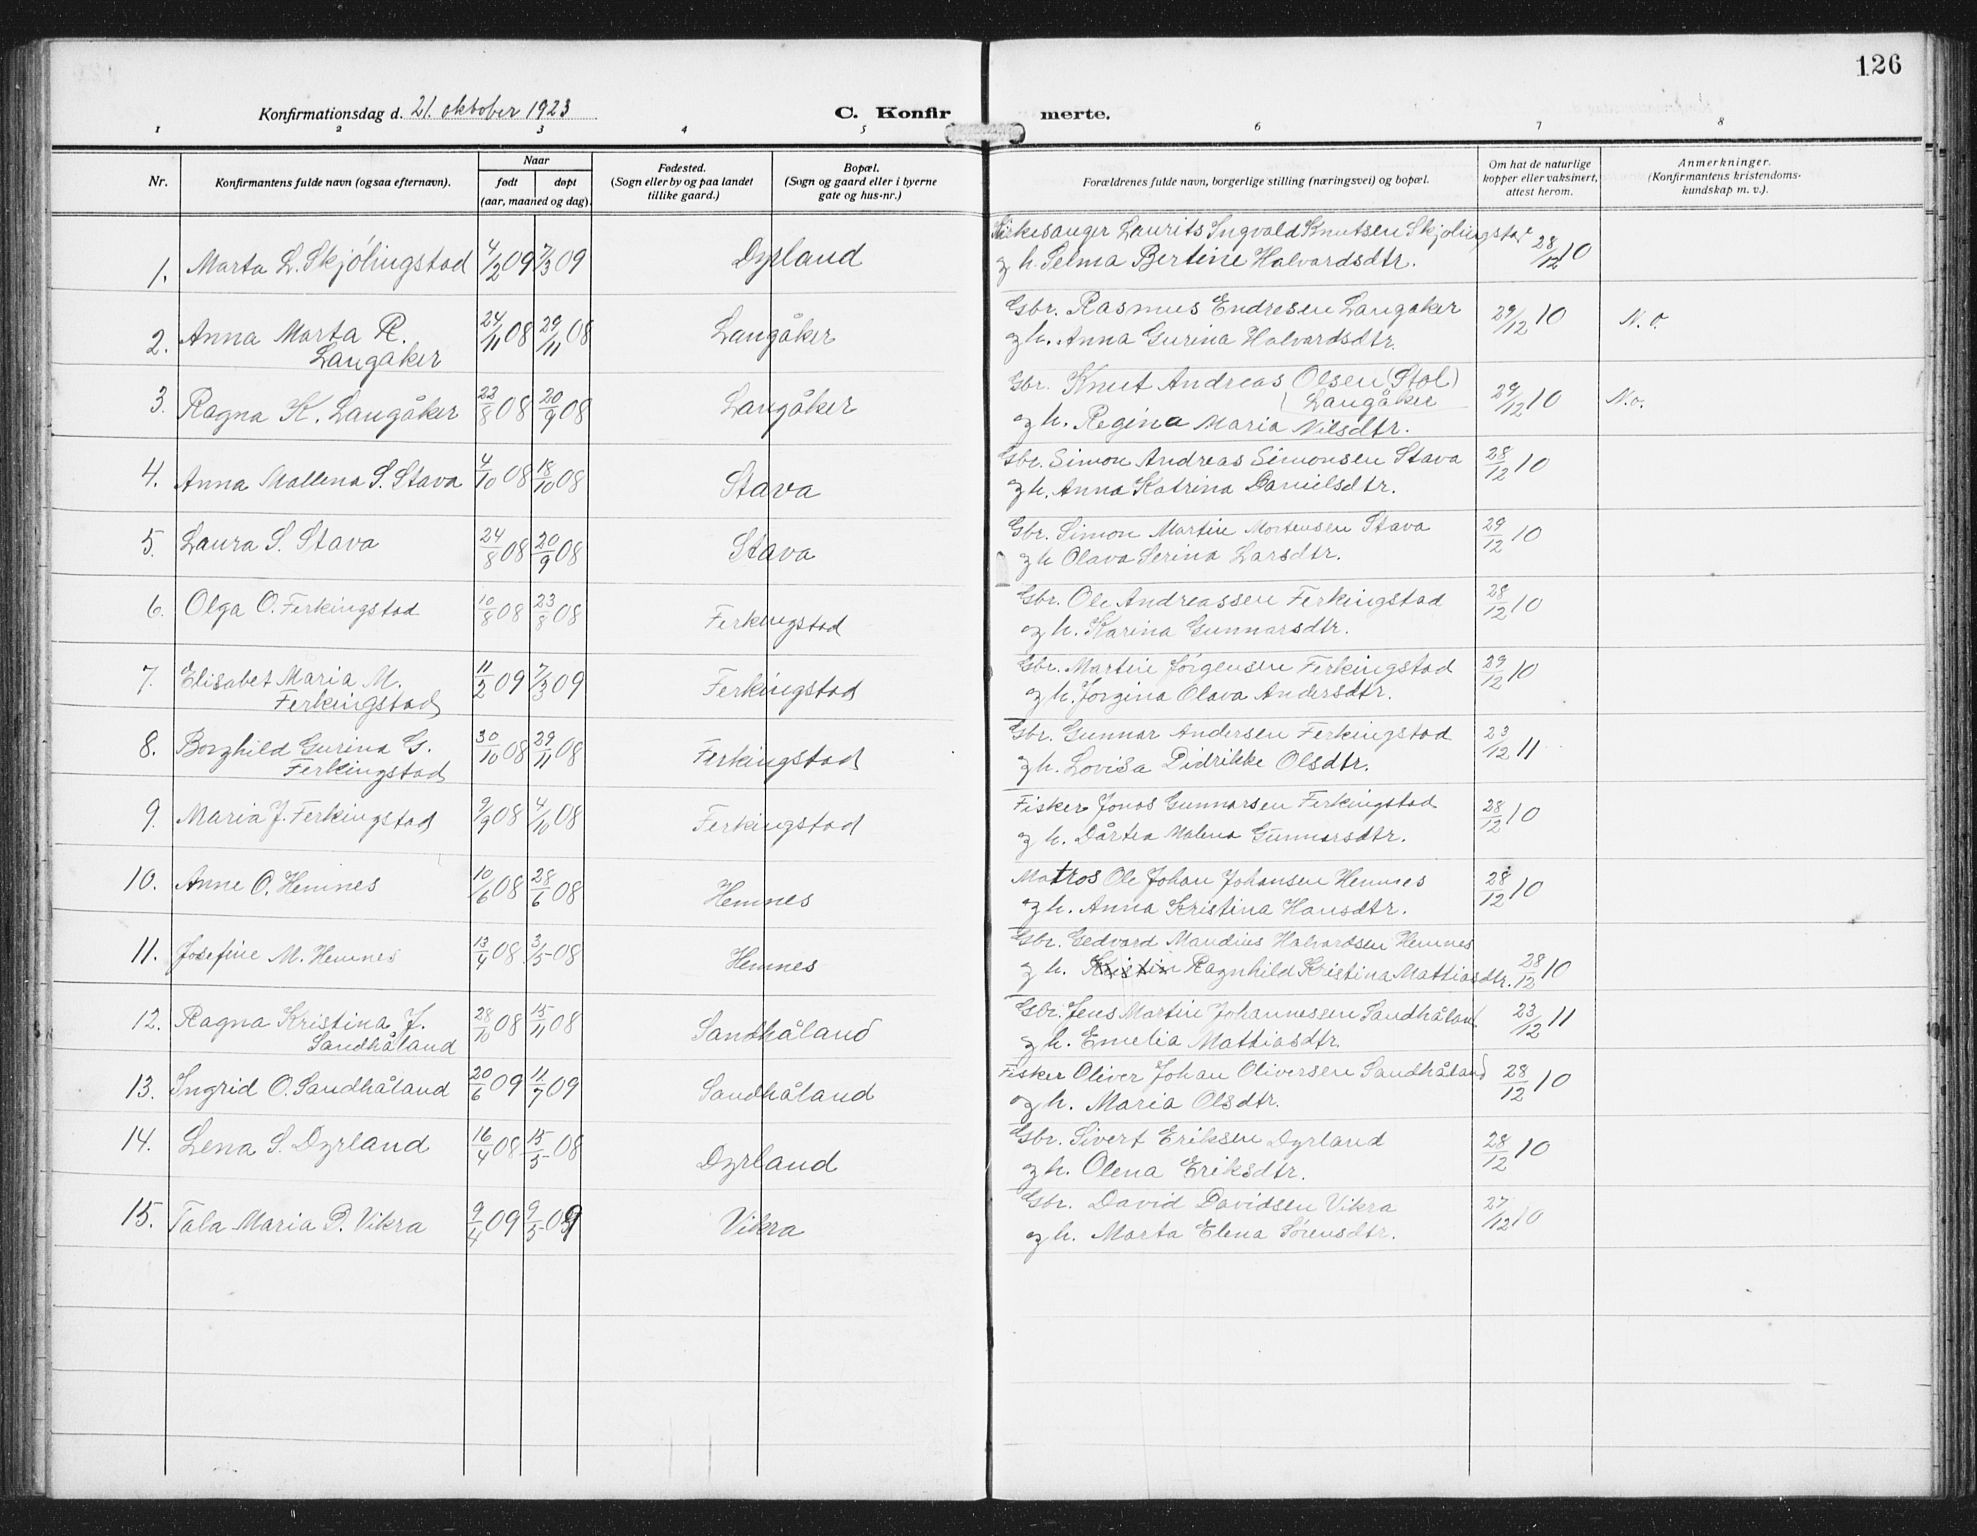 126
Konfirmationsdag d. 21. oktober 1923
C. Konfirmerte.
1 2 3 4 5 6 7 8
Nr. Konfirmantens fulde navn (ogsaa efternavn). Naar født døpt (aar, maaned og dag). Fødested. (Sogn eller by og paa landet tillike gaard.) Bopæl. (Sogn og gaard eller i byerne gate og hus-nr.) Forældrenes fulde navn, borgerlige stilling (næringsvei) og bopæl. Om hat de naturlige kopper eller vaksinert, attest herom. Anmerkninger. (Konfirmantens kristendomskundskap m. v.).
1. Marta L. Skjölingstad 4/2 09 7/3 09 Dyrland Kirkesanger Laurits Ingvald Knutsen Skjolingstad 28/12 10
og h. Selma Bertine Halvardsdtr.
2. Anna Marta R. 24/11 08 29/11 08 Langåker Gbr. Rasmus Endresen Langåker 29/12 10 N. o.
Langåker og h. Anna Gurina Halvardsdtr.
3. Ragna K. Langåker 22/8 08 20/9 08 Langåker Gbr. Knut Andreas Olsen (Stol) 29/12 10 N.o.
Langåker
og h. Regina Maria Nilsdtr.
4. Anna Mallena S. Stava 4/10 08 18/10 08 Stava Gbr. Simon Andreas Simonsen Stava 28/12 10
og h. Anna Katrina Danielsdtr.
5. Laura S. Stava 24/8 08 20/9 08 Stava Gbr. Simon Martin Mortensen Stava 29/12 10
og h Olava Serina Larsdtr.
6. Olga O. Ferkingstad 10/8 08 23/8 08 Ferkingstad Gbr. Ole Andreassen Ferkingstad 28/12 10
og h. Karina Gunnarsdtr.
7. Elisabet Maria M. 11/2 09 7/3 09 Ferkingstad Gbr. Martin Jörgensen Ferkingstad 29/12 10
Ferkingstad og h. Jorgina Olava Andersdtr.
8. Borghild Gurina G. 30/10 08 29/11 08 Ferkingstad Gbr. Gunnar Andersen Ferkingstad 23/12 11
Ferkingstad og h. Lovisa Didrikke Olsdtr.
9. Maria J. Ferkingstad 9/9 08 4/10 08 Ferkingstad Fisker Jonas Gunnarsen Ferkingstad 28/12 10
og h. Dårtea Malena Gunnarsdtr.
10. Anne O. Hemnes 10/6 08 28/6 08 Hemnes Matros Ole Johan Johansen Hemnes 28/12 10
og h. Anna Kristina Hansdtr.
11. Josefine M. Hemnes 13/4 08 3/5 08 Hemnes Gbr. Gedvard Mandius Halvardsen Hemnes
og h. Kristin Ragnhild Kristina Mattiasdtr. 28/12 10
12. Ragna Kristina J. 28/10 08 15/11 08 Sandhåland Gbr. Jens Martin Johannessen Sandhåland 23/12 11
Sandhåland og h. Emelia Mattiasdtr.
13. Ingrid O. Sandhåland 20/6 09 11/7 09 Sandhåland Fisker Oliver Johan Oliversen Sandhåland 28/12 10
og h. Maria Olsdtr.
14. Lena S. Dyrland 16/4 08 15/5 08 Dyrland Gbr. Sivert Eriksen Dyrland 28/12 10
og h. Olena Eriksdtr.
15. Tala Maria D. Vikra 9/4 09 9/5 09 Vikra Gbr. David Davidsen Vikra 27/12 10
og h. Marta Elena Sörensdtr.